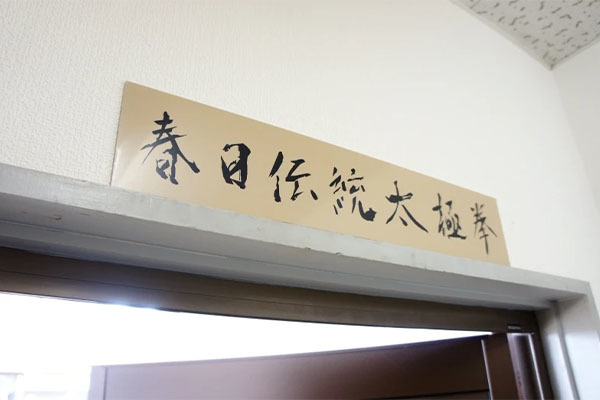 春日伝統太極拳